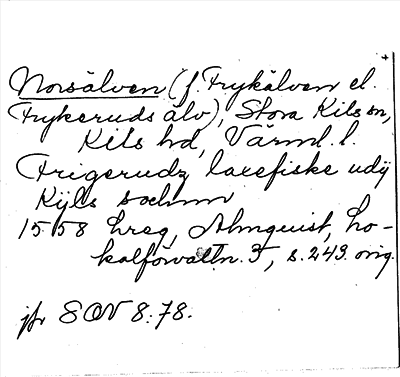 Norsälven (f. Frykälven el.
Frykeruds älv), Stora Kils sn,
Kils hd, Värml. l.
Frigerudz laxefiske udÿ
Kijls sochnn
1558 hreg, Almquist, Lo-
kalförvaltn. 3, s. 249. orig.
jfr SOV 8:78.